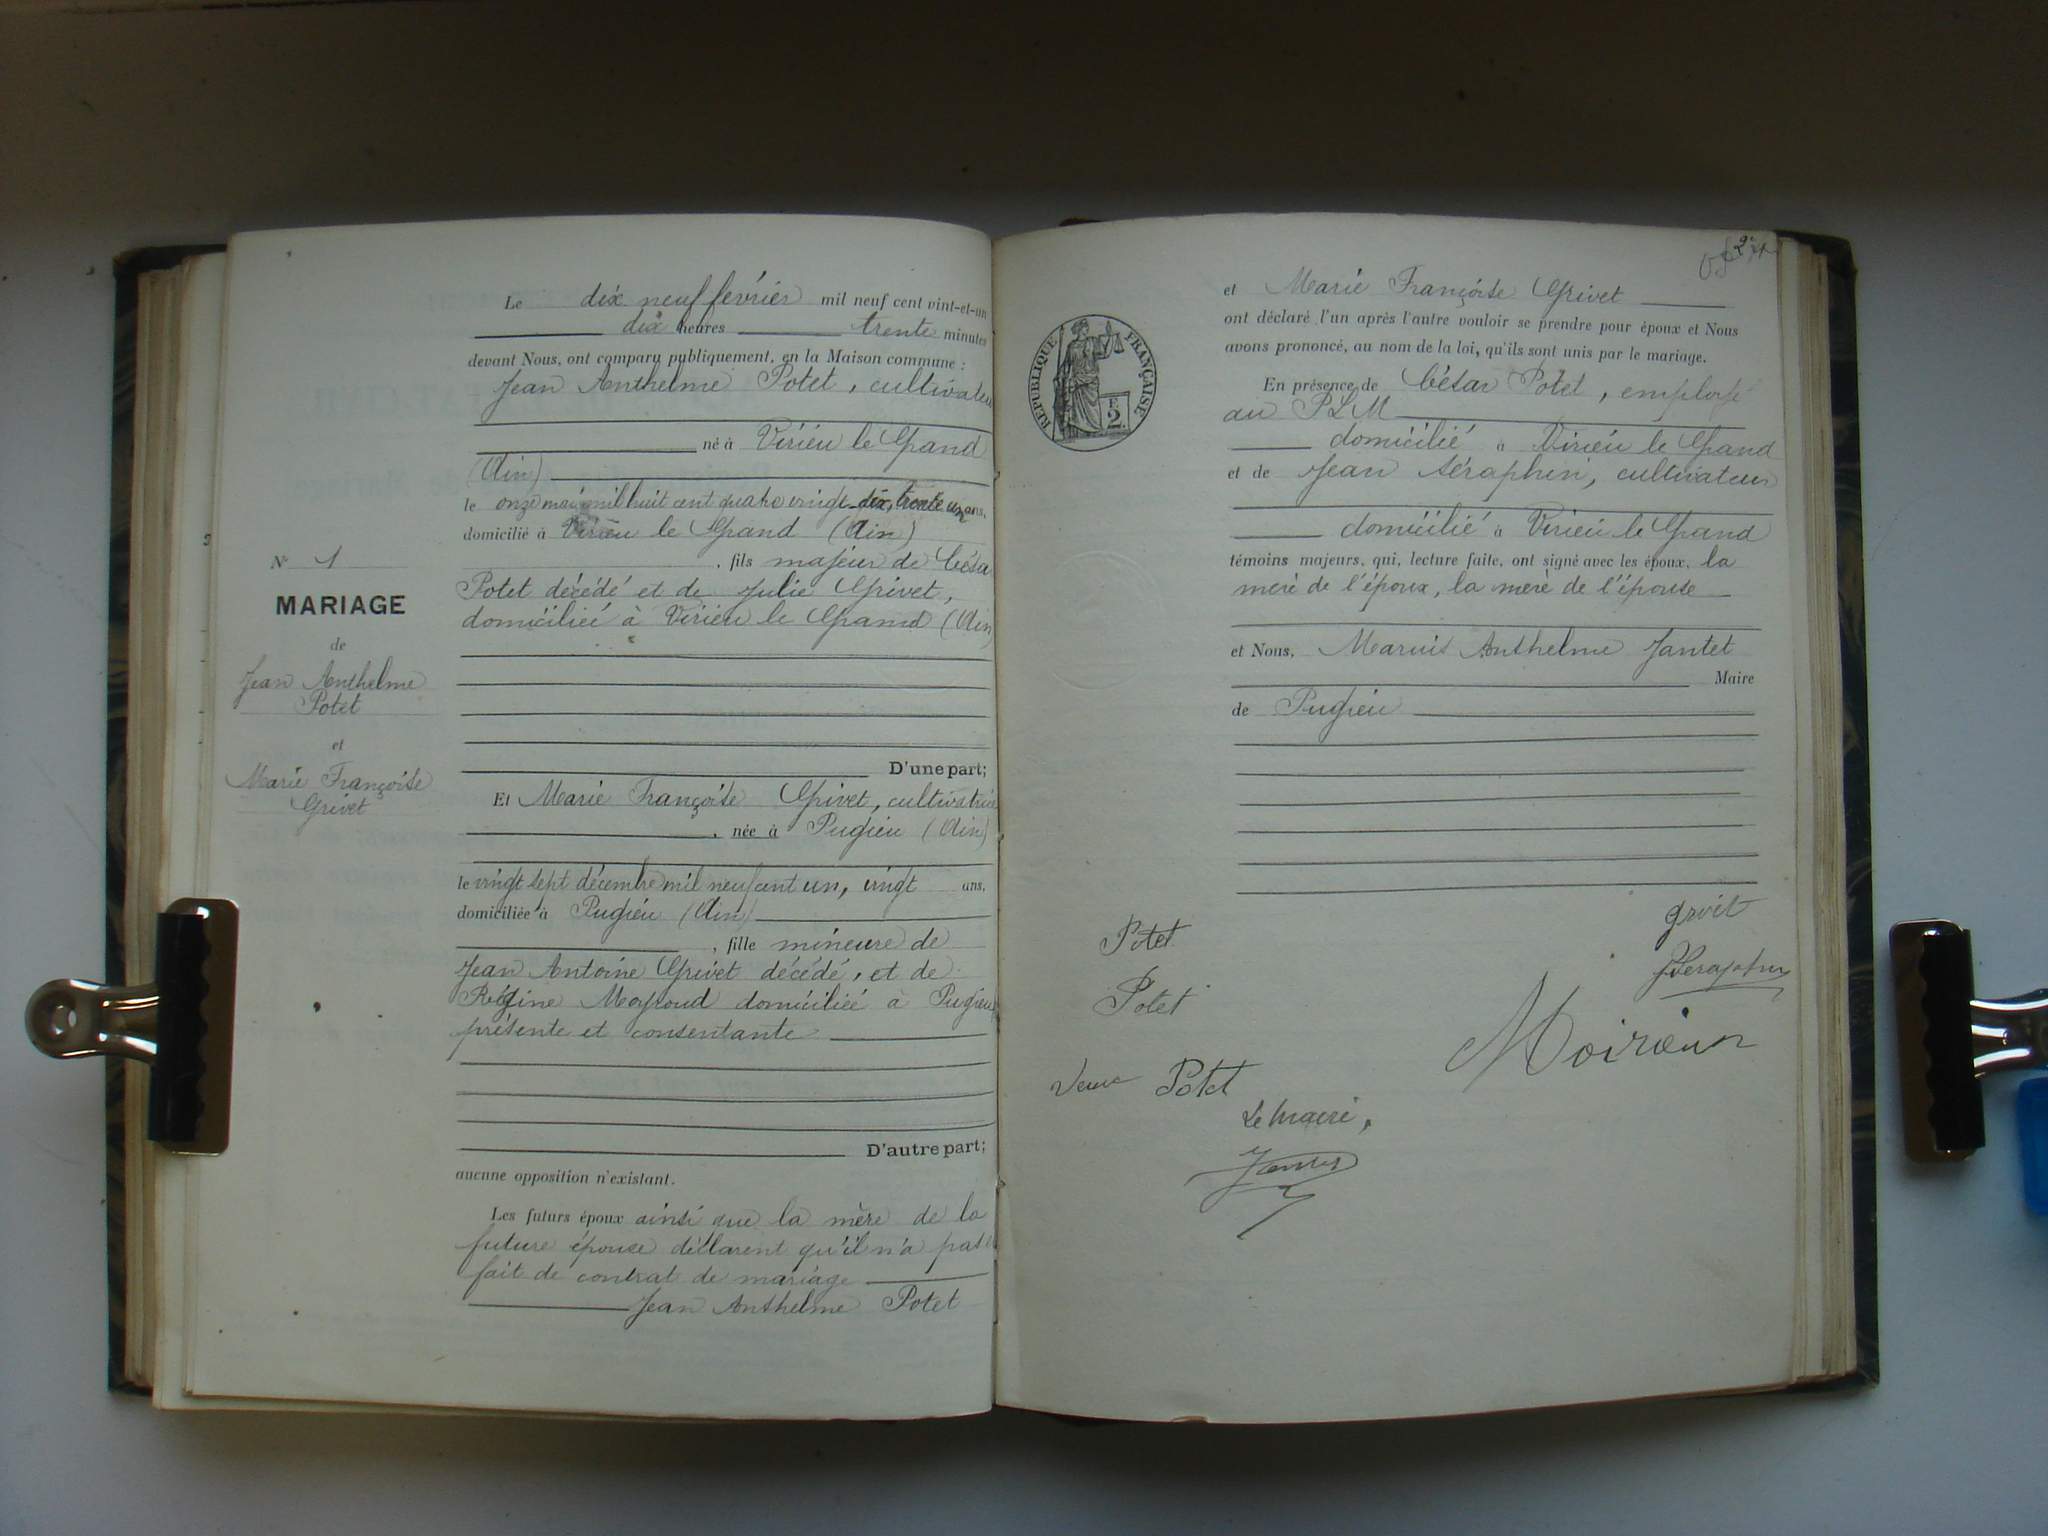 Le dix neuf février mil neuf cent vint-et-un
dix heures trente minutes
devant Nous, ont comparu publiquement, en la Maison commune :
Jean Anthelme Potet, cultivateur
né à Virieu le Grand
(Ain)
le onze mai mil huit cent quatre vingt dix, trente un ans,
domicilié à Virieu le Grand (Ain)
, fils majeur de César
Potet décédé et de Julie Grivet,
domiciliée à Virieu le Grand (Ain)
D'une part;
Et Marie Françoise Grivet, cultivatrice
, née à Pugieu (Ain)
le vingt sept décembre mil neuf cent un, vingt ans,
domiciliée à Pugieu (Ain)
, fille mineure de
Jean Antoine Grivet décédé, et de
Régine Meyroud domiciliée à Pugieu
présente et consentante
D'autre part;
aucune opposition n'existant.
Les futurs époux ainsi que la mère de la
future épouse déclarent qu'il n'a pas
fait de contrat de mariage
Jean Anthelme Potet
N° 1
MARIAGE
de
Jean Anthelme
Potet
et
Marie Françoise
Grivet
2
et Marie Françoise Grivet
ont déclaré l'un après l'autre vouloir se prendre pour époux et Nous
avons prononcé, au nom de la loi, qu'ils sont unis par le mariage.
En présence de César Potet, employé
au PLM
domicilié à Virieu le Grand
et de Jean Séraphin, cultivateur
domicilié à Virieu le Grand
témoins majeurs, qui, lecture faite, ont signé avec les époux, la
mère de l'époux, la mère de l'épouse
et Nous, Marius Anthelme Jantet
Maire
de Pugieu
RÉPUBLIQUE FRANÇAISE
F
2
Potet
Potet
Veuve Potet
Le Maire,
JSeraphin